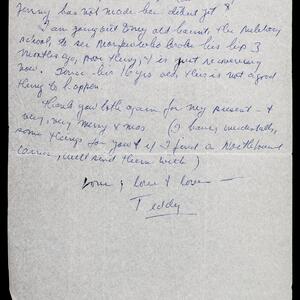 Jenny has not made her debut yet
I am going out to my old haunt, the military
school, to see who broke his hip 3
months ago, poor thing, & is just recovering
now. Since his 16 yrs old, this is not a good
thing to happen.
Thank you both again for my present - &
very, very merry Xmas (I have, incidentally,
some things for you & if I find a Northbound
carrier, will send them with)
love, love & love -
Teddy